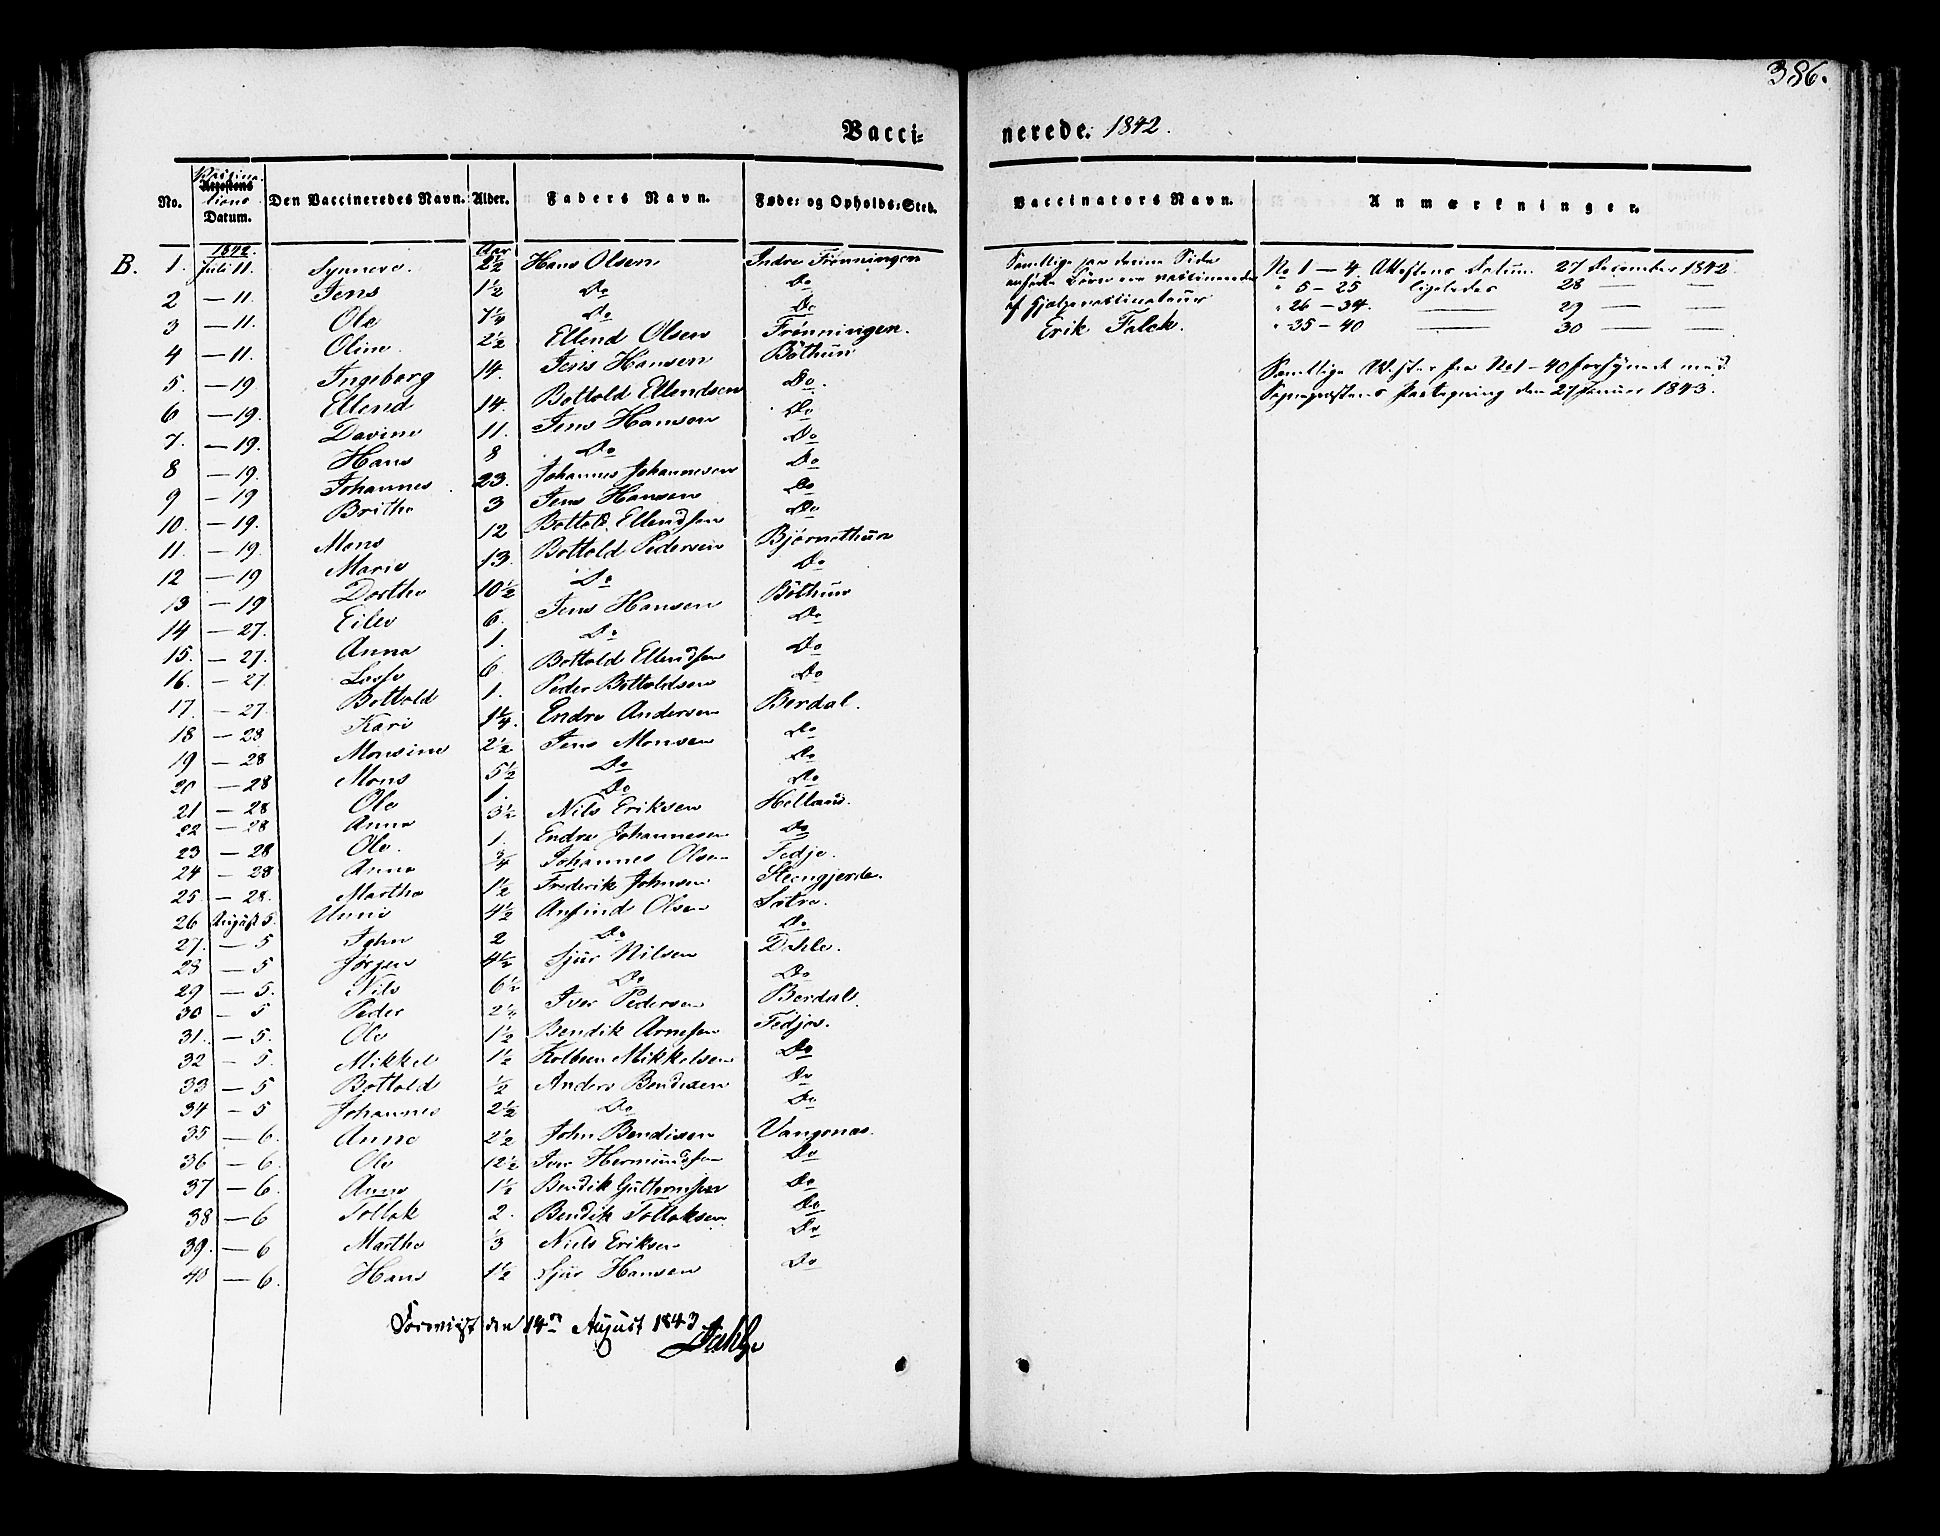 386.
Vacci-
nerede. 1842.
No. Attestens Datum. Den Vaccineredes Navn. Alder. Faders Navn. Føde- og Opholds-Sted. Vaccinators Navn. Anmærkninger.
1842. Aar
B. 1. Juli 11. Synneve. 2½ Hans Olsen Indre Frønningen
2 — 11. Jens 1½ Do Do
3 — 11. Ole ¼ Do Do
4 — 11. Oline 2½ Ellend Olsen Frønningen.
5. — 19 Ingeborg 14. Jens Hansen Böthun
6 — 19. Ellend 14. Bottold Ellendsen Do.
7. — 19. Davine 11. Jens Hansen Do
8 — 19. Hans 8 Do Do
9 — 19 Johannes 23. Johannes Johannesen Do
10. — 19. Brithe 3 Jens Hansen Do
11. — 19 Mons 12 Bottold Ellendsen Do
12 — 19 Marie 13. Bottold Pedersen Bjørnethun
13 — 19 Dorthe 10½ Do Do
14 — 27. Eilev 6. Jens Hansen Böthun
15. — 27. Anna 1. Do Do
16. — 27. Lasse 6. Bottold Ellendsen Do
17. — 27. Bottold 1. Peder Bottoldsen Do
18 — 28 Kari 1¼. Endre Andersen Berdal.
19 — 28 Monsine 2½ Jens Monsen Do
20 — 28 Mons 5½ Do Do
21 — 28 Ole 1. Do Do
22 — 28 Anna 3½ Nils Eriksen Helland.
23 — 28 Ole. 1. Endre Johannesen Do
24 — 28 Anna ¾ Johannes Olsen Fedje.
25. — 28. Martha 1½ Frederik Johnsen Steengjerde.
26 August 5. Unni 4½ Anfind Olsen Sätre.
27. — 5 John 2 Do Do
28 — 5 Jørgen 4½ Sjur Nilsen Dahle.
29 — 5. Nils 6½ Do Do
30 — 5 Peder 2¼ Iver Pedersen Berdal.
31. — 5. Ole 1½ Bendik Arnesen Fedje.
32 — 5. Mikkel 1½ Kolbein Mikkelsen Do
33 — 5 Bottold ½ Anders Bendixen Do
34 — 5 Johannes 2½ Do Do
35 — 6. Anne 2½ John Bendixen Vangsnæs.
36 — 6. Ole 12½ Iver Hermundsen Do
37 — 6. Anna 1½ Bendik Guttormsen Do
38 — 6 Tollak 2. Bendik Tollaksen Do
39. — 6 Martha ⅓ Niels Eriksen Do
40 — 6. Hans 1½ Sjur Hansen Do
den 14de August 1843
Samtlige paa denne Side
anførte Børn ere vaccinerede
af Hjelpevaccinateur
Erik Falck.
No 1 — 4. Attestens Datum 27 December 1842.
" 5 — 25 ligeledes 28 — —
" 26 — 34. — 29 — —
" 35 — 40 — 30 — —
Samtlige Attester fra No 1 – 40 forsynede med
Sogneprestens Paategning den 27 Januar 1843.